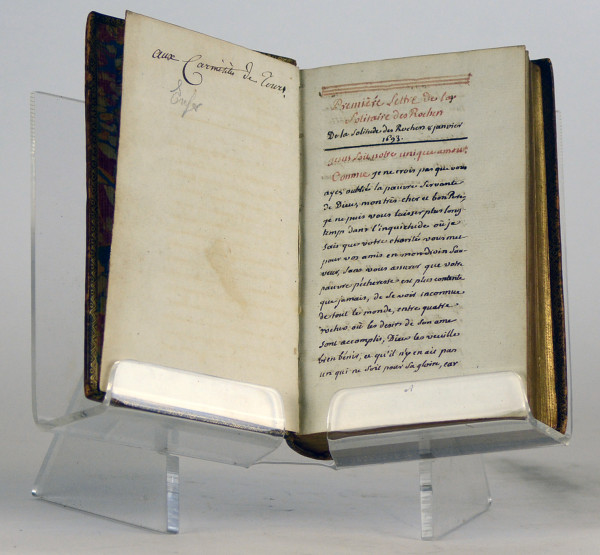 aux Carmelites de Tours
Première Lettre de la
Solitaire des Rochers
De la solitude des Rochers janvier
1693.
votre unique amour,
Comme je ne crois pas que vous
ayez oublié la pauvre servante
de Dieu, mon très cher et bon Père,
je ne puis vous laisser plus long
temp dans l'inquietude où je
sais que votre charité vous met
pour vos amis en mon divin Sau-
veur, sans vous assurer que votre
pauvre pécheresse est plus contente
que jamais, de se voir inconnue
de tout le monde, entre quatre
rochers où les desirs de son ame
sont accomplis, Dieu les veuille
bien bénir, et qu'il n'y en ait pas
un qui ne soit pour sa gloire, car